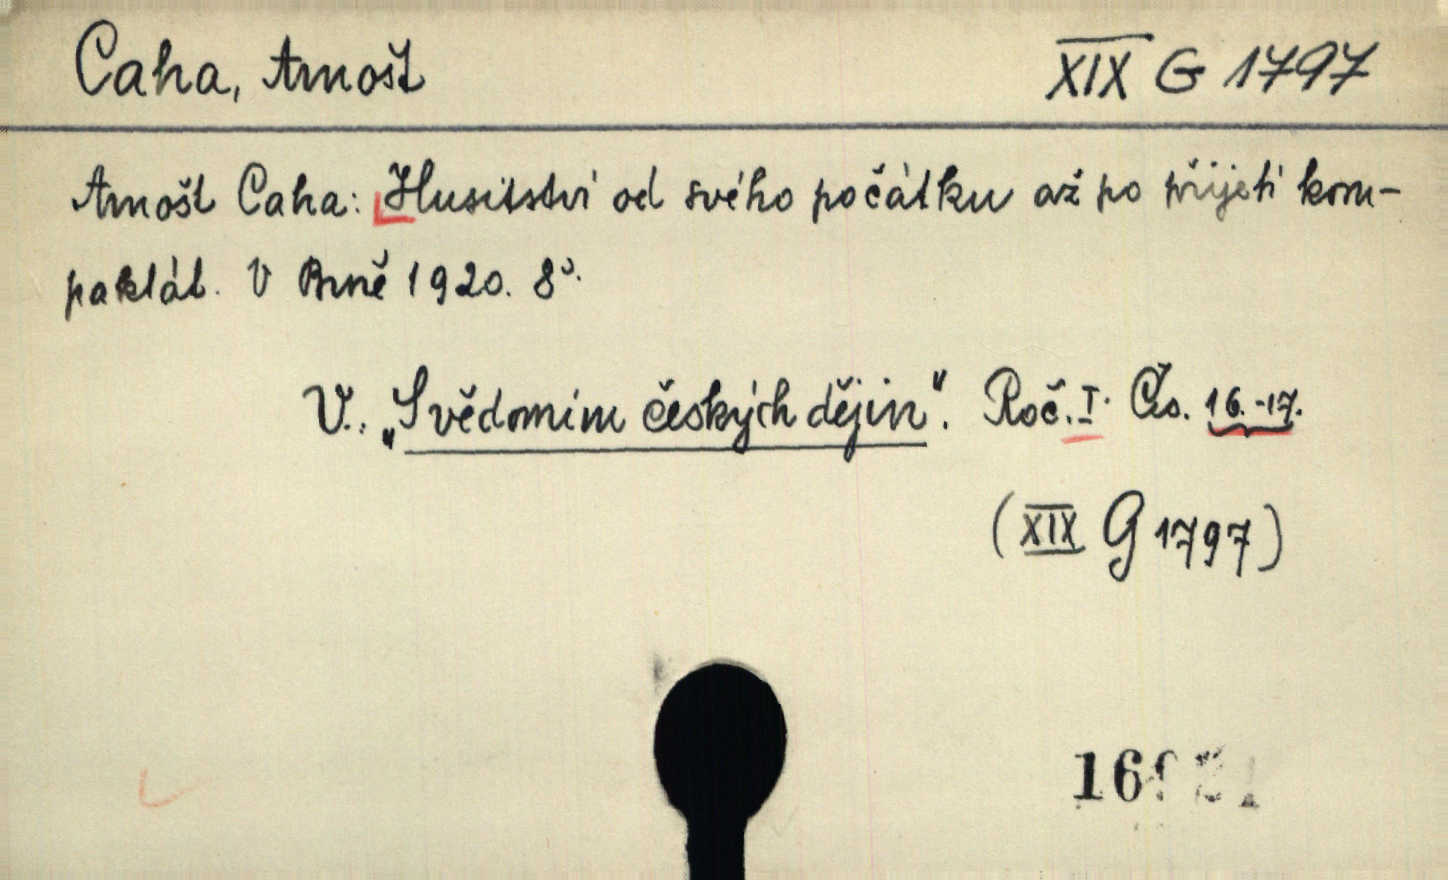 Caha, Arnošt XIX G 1797
Arnošt Caha: Husitství od svého počátku až po přijetí kom-
paktát. V Brně 1920. 8°.
V: „Svědomím českých dějin". Roč. I. Čís. 16.-17.
(XIX G 1797)